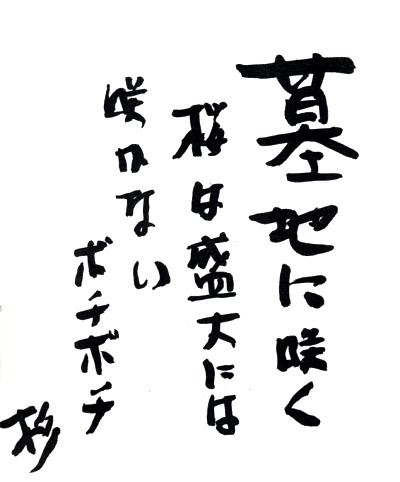 墓地に咲く
桜は盛大には
咲かない
ボチボチ
杉